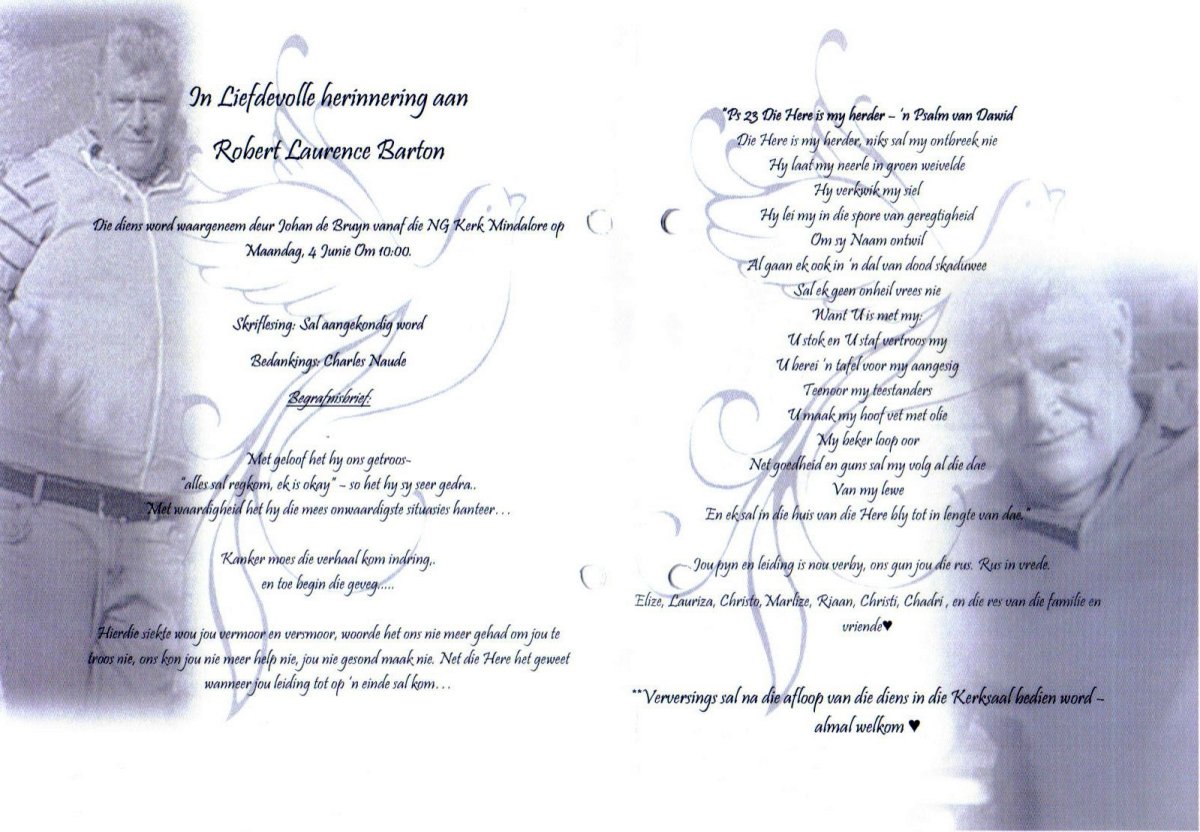 In Liefdevolle herinnering aan
Robert Laurence Barton
Die diens word waargeneem deur Johan de Bruyn vanaf die NG Kerk Mindalore op
Maandag, 4 Junie Om 10:00.
Skriflesing: Sal aangekondig word
Bedankings: Charles Naude
Begrafnisbrief:
Met geloof het hy ons getroos-
"alles sal regkom, ek is okay" – so het hy sy seer gedra..
Met waardigheid het hy die mees onwaardigste situasies hanteer…
Kanker moes die verhaal kom indring,.
en toe begin die geveg.....
Hierdie siekte wou jou vermoor en versmoor, woorde het ons nie meer gehad om jou te
troos nie, ons kon jou nie meer help nie, jou nie gesond maak nie. Net die Here het geweet
wanneer jou leiding tot op 'n einde sal kom…
"Ps 23 Die Here is my herder – 'n Psalm van Dawid
Die Here is my herder, niks sal my ontbreek nie
Hy laat my neerle in groen weivelde
Hy verkwik my siel
Hy lei my in die spore van geregtigheid
Om sy Naam ontwil
Al gaan ek ook in 'n dal van dood skaduwee
Sal ek geen onheil vrees nie
Want U is met my:
U stok en U staf vertroos my
U berei 'n tafel voor my aangesig
Teenoor my teestanders
U maak my hoof vet met olie
My beker loop oor
Net goedheid en guns sal my volg al die dae
Van my lewe
En ek sal in die huis van die Here bly tot in lengte van dae."
Jou pyn en leiding is nou verby, ons gun jou die rus. Rus in vrede.
Elize, Lauriza, Christo, Marlize, Riaan, Christi, Chadri , en die res van die familie en
vriende♥
**Verversings sal na die afloop van die diens in die Kerksaal bedien word –
almal welkom ♥